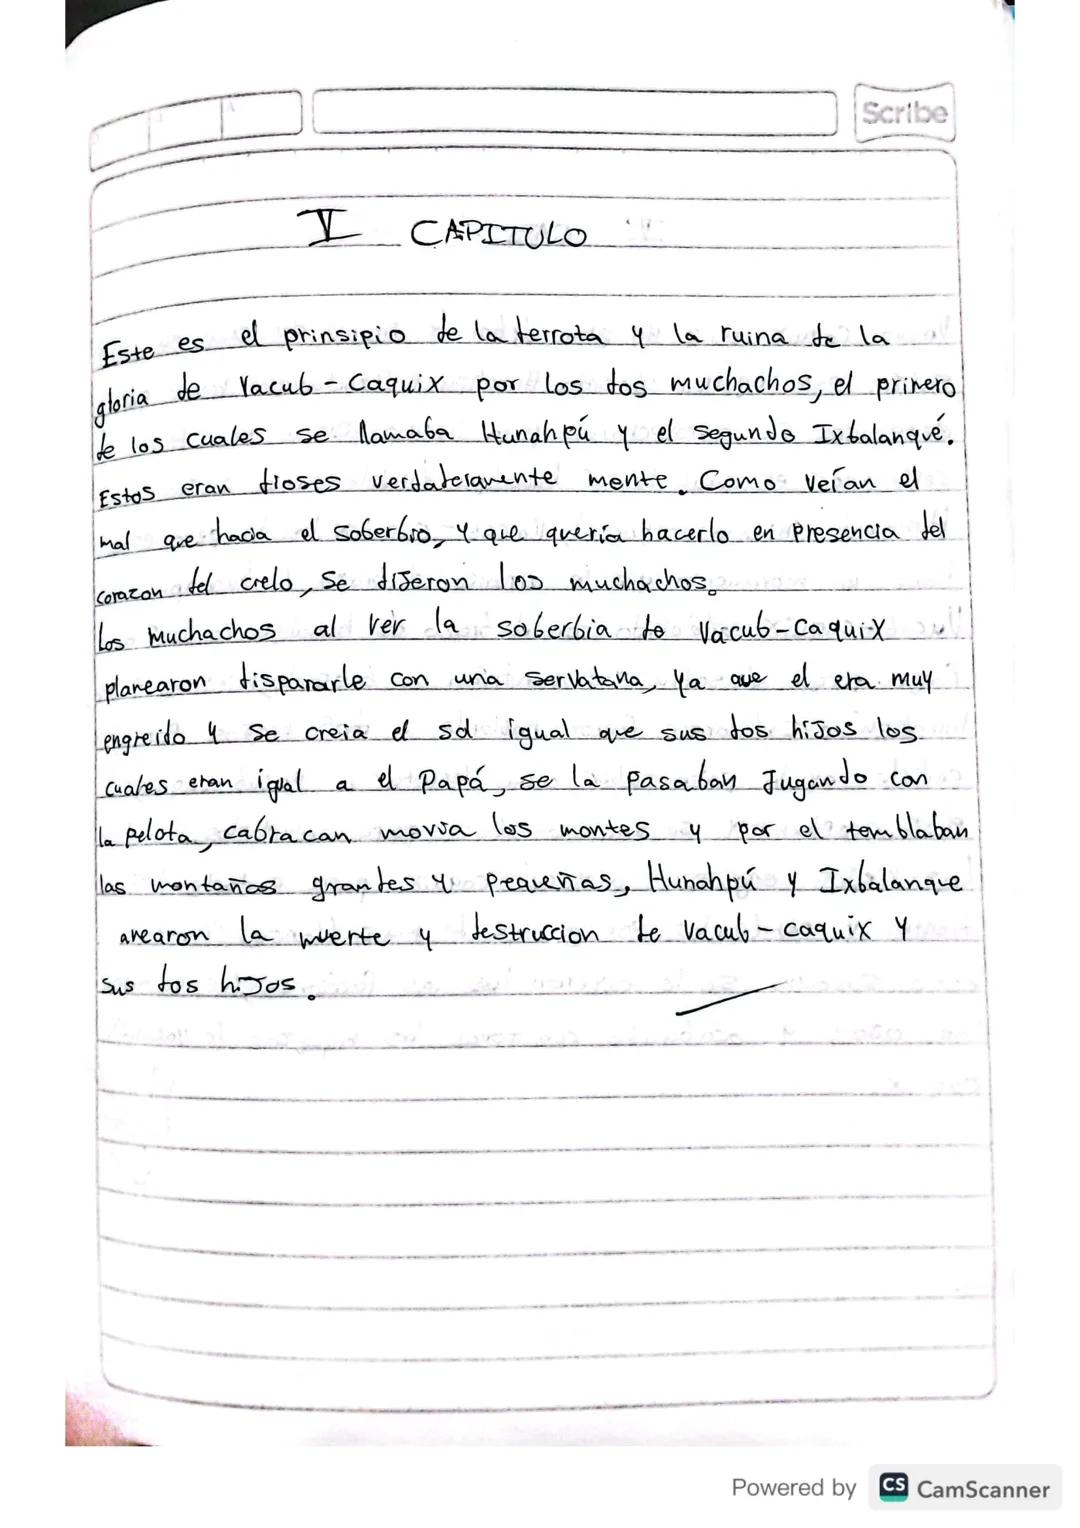 Scribe
V CAPITULO
Este es el prinsipio de la derrota y la ruina de la
gloria de Vacub-Caquix por los dos muchachos, el primero
de los cuales se llamaba Hunahpú y el segundo Ixbalanqué.
Estos eran dioses verdaderamente mente. Como veían el
mal que hacia el soberbio, y que quería hacerlo en presencia del
corazon del cielo, se dijeron los muchachos.
los muchachos al ver la soberbia de Vacub-Caquix
planearon dispararle con una servatana, ya que el era muy
engreido y se creia el sol igual que sus dos hijos los
cuales eran igual a el Papá, se la pasaban Jugando con
la pelota, cabracan movia los montes y por el temblaban
las montañas grandes y pequeñas, Hunahpú y Ixbalanque
arearon la muerte y destruccion de Vacub-caquix y
sus dos hijos.
Powered by CS CamScanner